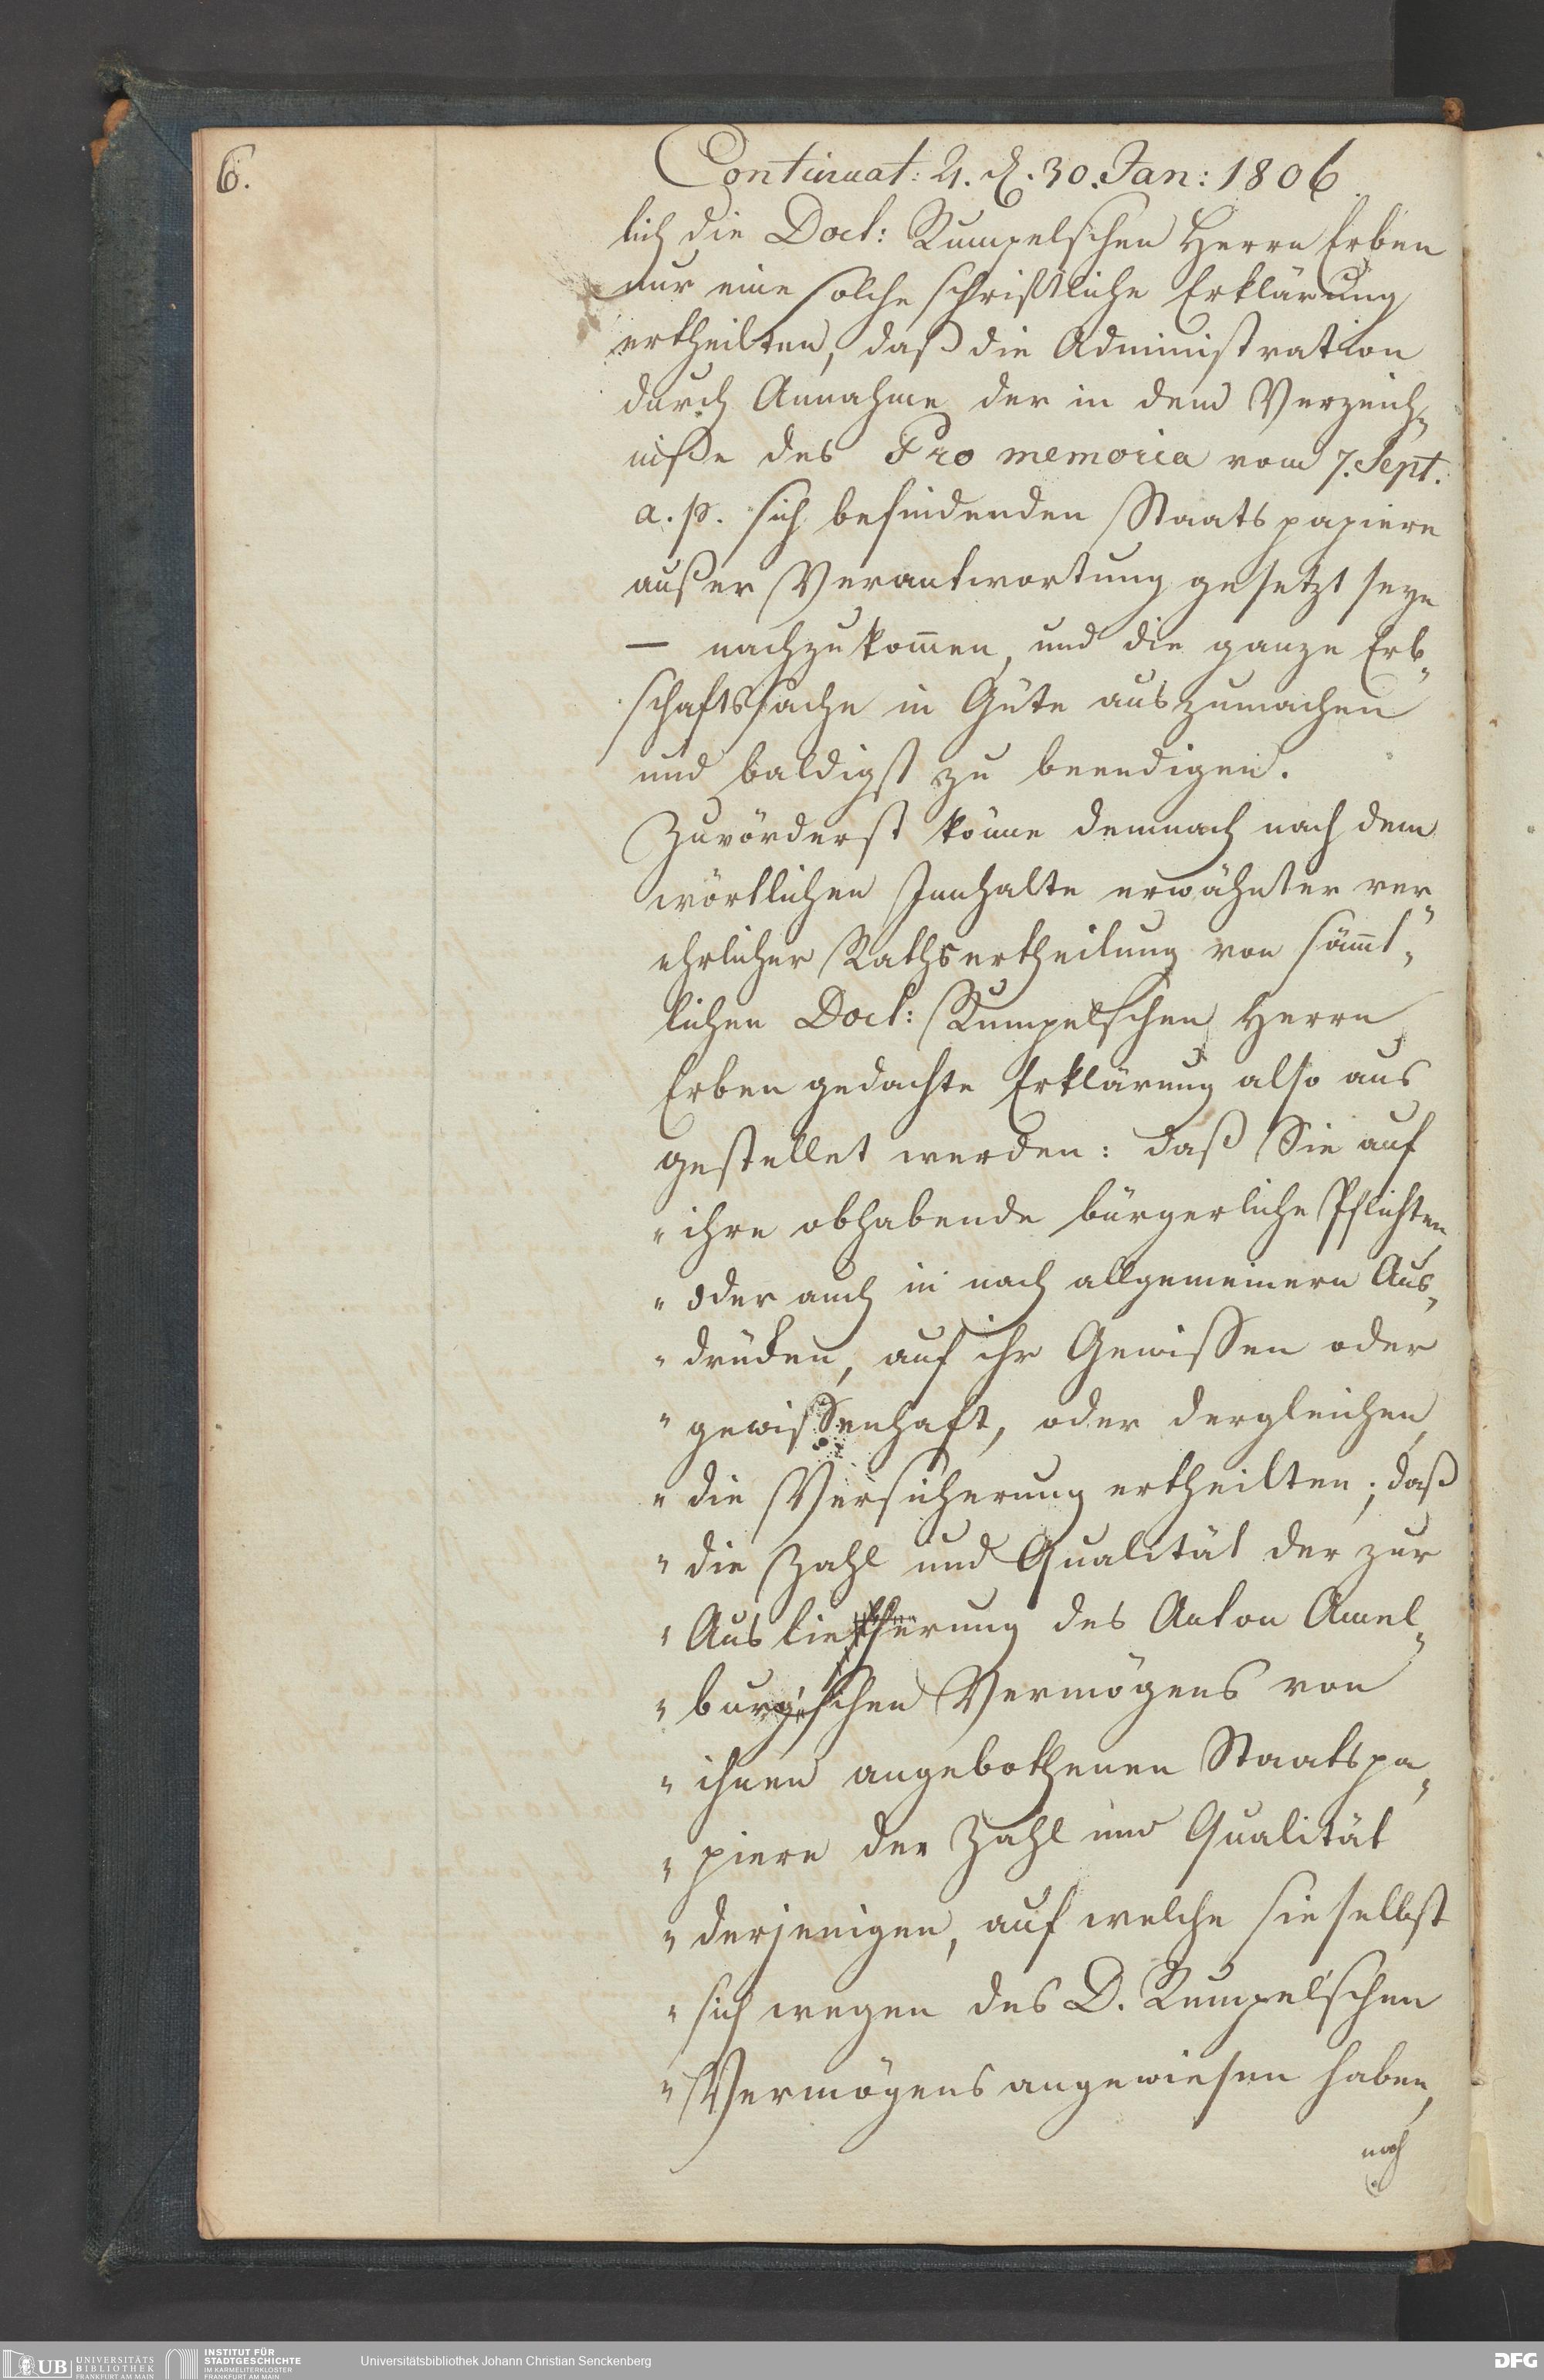 6.
Continuat: 4. d. 30. Jan: 1806
lich die Doct: Rumpelschen Herrn Erben
nur eine solche schriftliche Erklärung
ertheilten, daß die Administration
durch Annahme der in dem Verzeich-
niße des Pro memoria vom 7. Sept.
a. p. sich befindenden Staatspapiere
außer Verantwortung gesetzt seye
— nachzukom̅en, und die ganze Erb-
schaftssache in Güte auszumachen
und baldigst zu beendigen.
Zuvörderst könne demnach nach dem
wörtlichen Innhalte erwähnter ver-
ehrlicher Rathsertheilung von säm̅t-
lichen Doct: Rumpelschen Herrn
Erben gedachte Erklärung also aus
gestellet werden: daß Sie auf
" ihre obhabende bürgerliche Pflichten,
" oder auch in noch allgemeinern Aus-
" drücken, auf ihr Gewissen oder
" gewissenhaft, oder dergleichen,
" die Versicherung ertheilten; daß
" die Zahl und Qualität der zur
" Auslieferung des Anton Amel-
" burg'schen Vermögens von
" ihnen angebothenen Staatspa-
" piere der Zahl und Qualität
" derjenigen, auf welche sie selbst
" sich wegen des D. Rumpel'schen
" Vermögens angewiesen haben,
noch
UB UNIVERSITÄTS
BIBLIOTHEK
FRANKFURT AM MAIN
INSTITUT FÜR
STADTGESCHICHTE
IM KARMELITERKLOSTER
FRANKFURT AM MAIN
Universitätsbibliothek Johann Christian Senckenberg
DFG